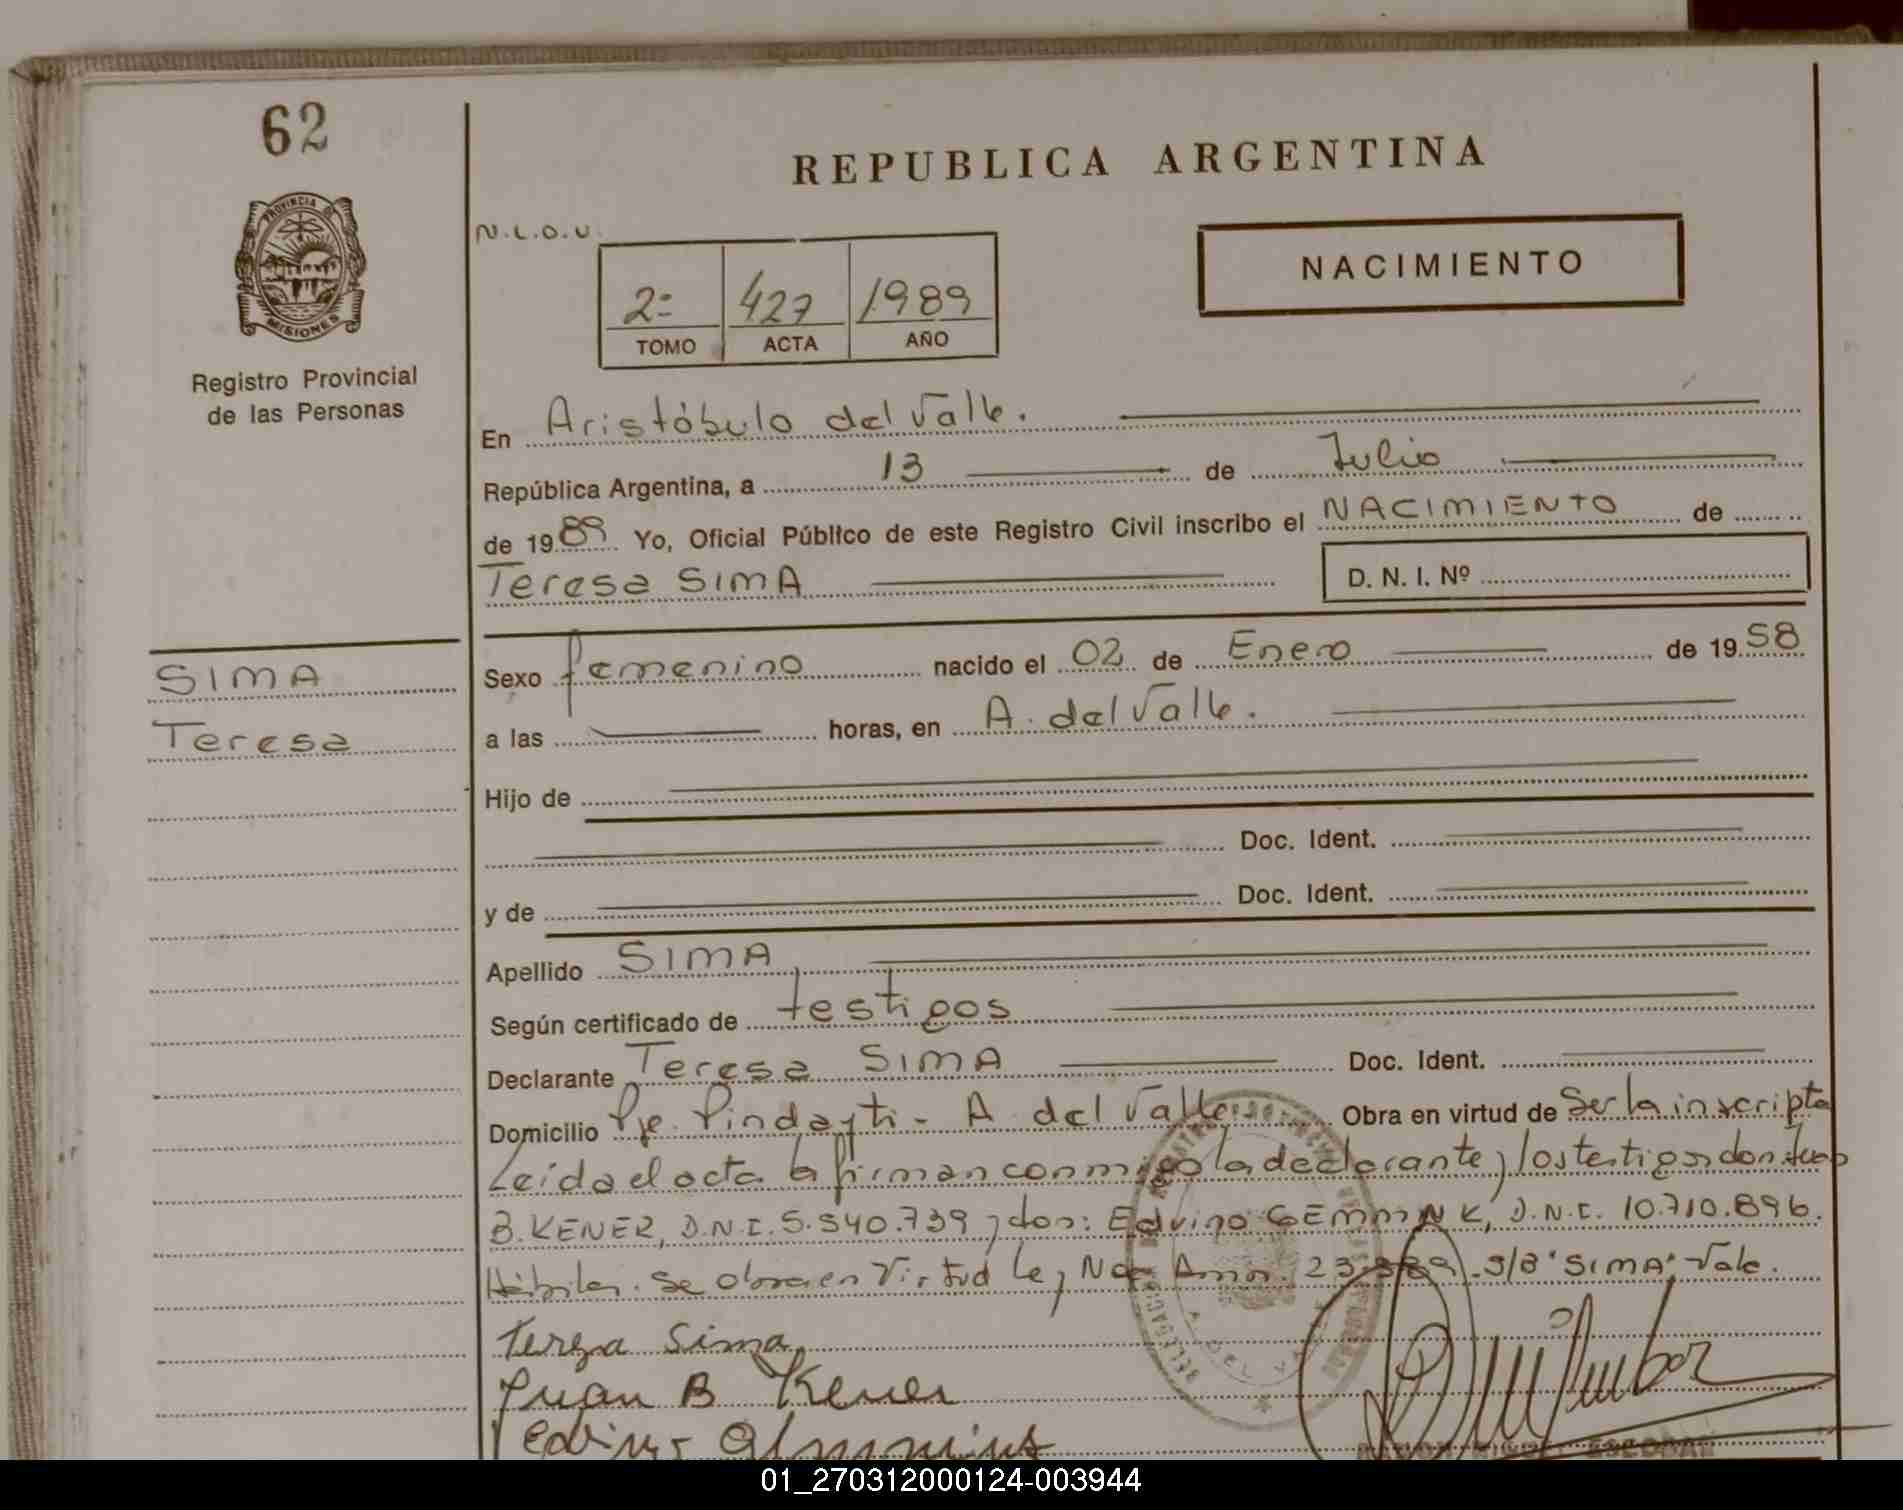 62
REPUBLICA ARGENTINA
PROVINCIA DE
MISIONES
Registro Provincial
de las Personas
N.L.O.U.
NACIMIENTO
2= 427 1989
TOMO ACTA AÑO
En Aristóbulo del Valle.
República Argentina, a 13 de Julio
de 1989 Yo, Oficial Público de este Registro Civil inscribo el NACIMIENTO de
Teresa SIMA D. N. I. Nº
SIMA
Teresa
Sexo femenino nacido el 02 de Enero de 1958
a las horas, en A. del Valle.
Hijo de
Doc. Ident.
y de Doc. Ident.
Apellido SIMA
Según certificado de testigos
Declarante Teresa SIMA Doc. Ident.
Domicilio Pje. Pindayti - A. del Valle Obra en virtud de Ser la inscripta
Leída el acta la firman conmigo la declarante y los testigos don Juan
B. KENER, D.N.I. 5.540.739 y don: Edvino GEMMINK, D.N.I. 10.710.896.
Hábiles. Se obra en Virtud Ley Nac. Amn. 23. S/B "SIMA" Vale.
Teresa Sima
Juan B Kener
A. DEL VALLE
ESCOBAR
01_270312000124-003944